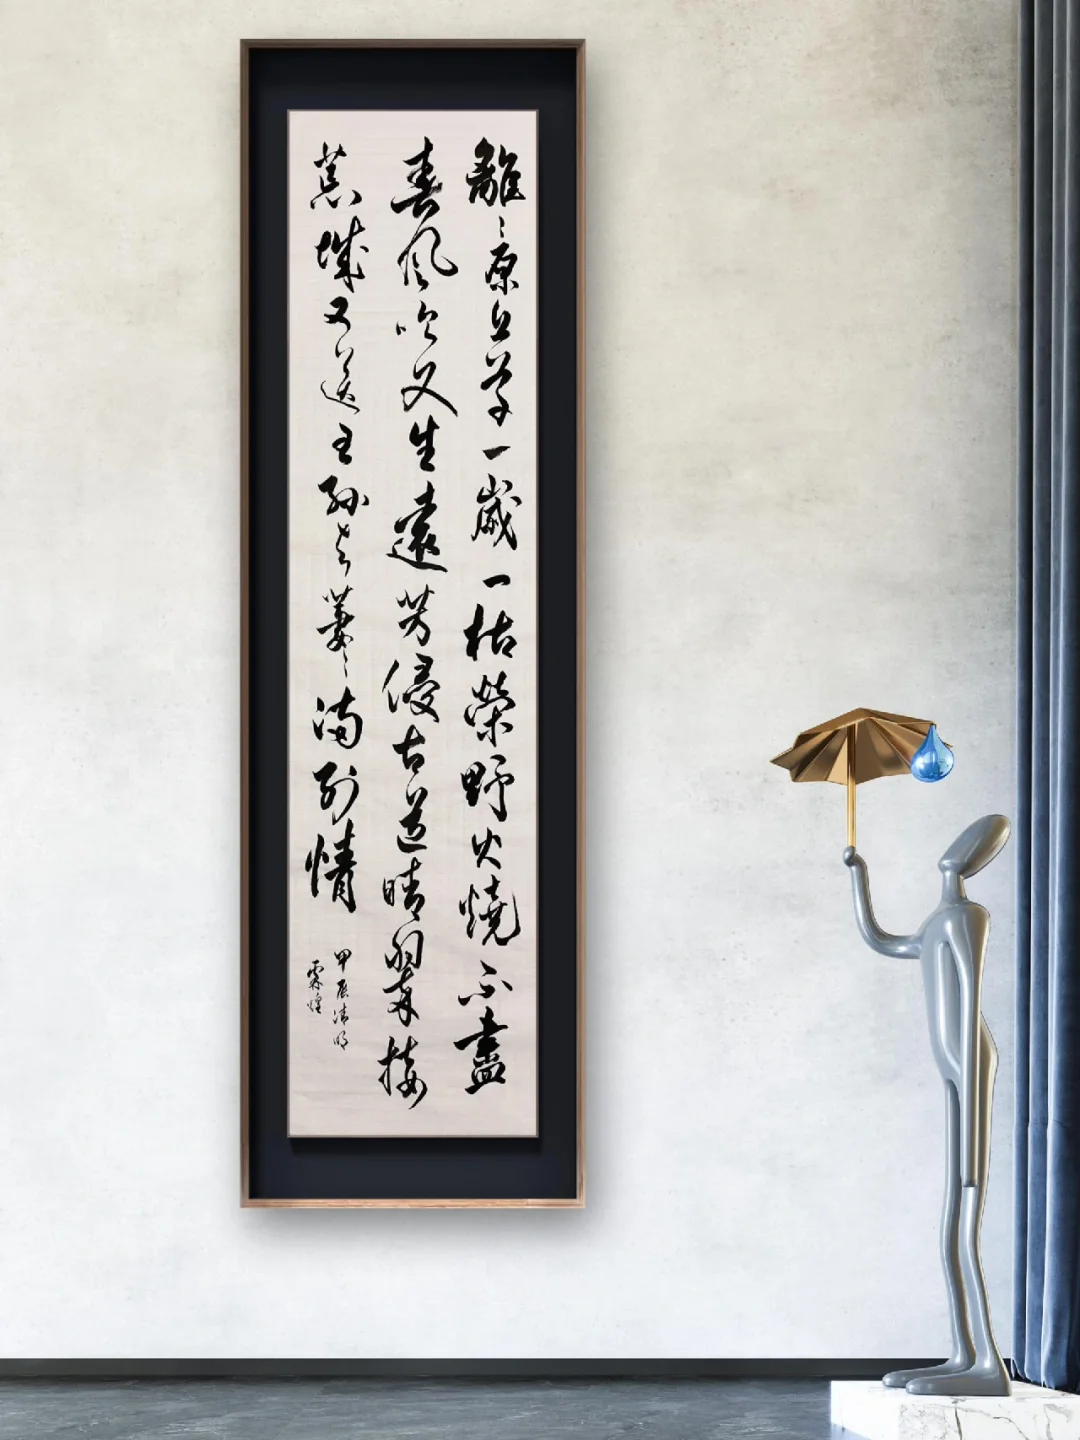 離〻原上草一歲一枯榮野火燒不盡
春風吹又生遠芳侵古道晴翠接
荒城又送王孫去萋〻滿別情
甲辰清明
霖煌